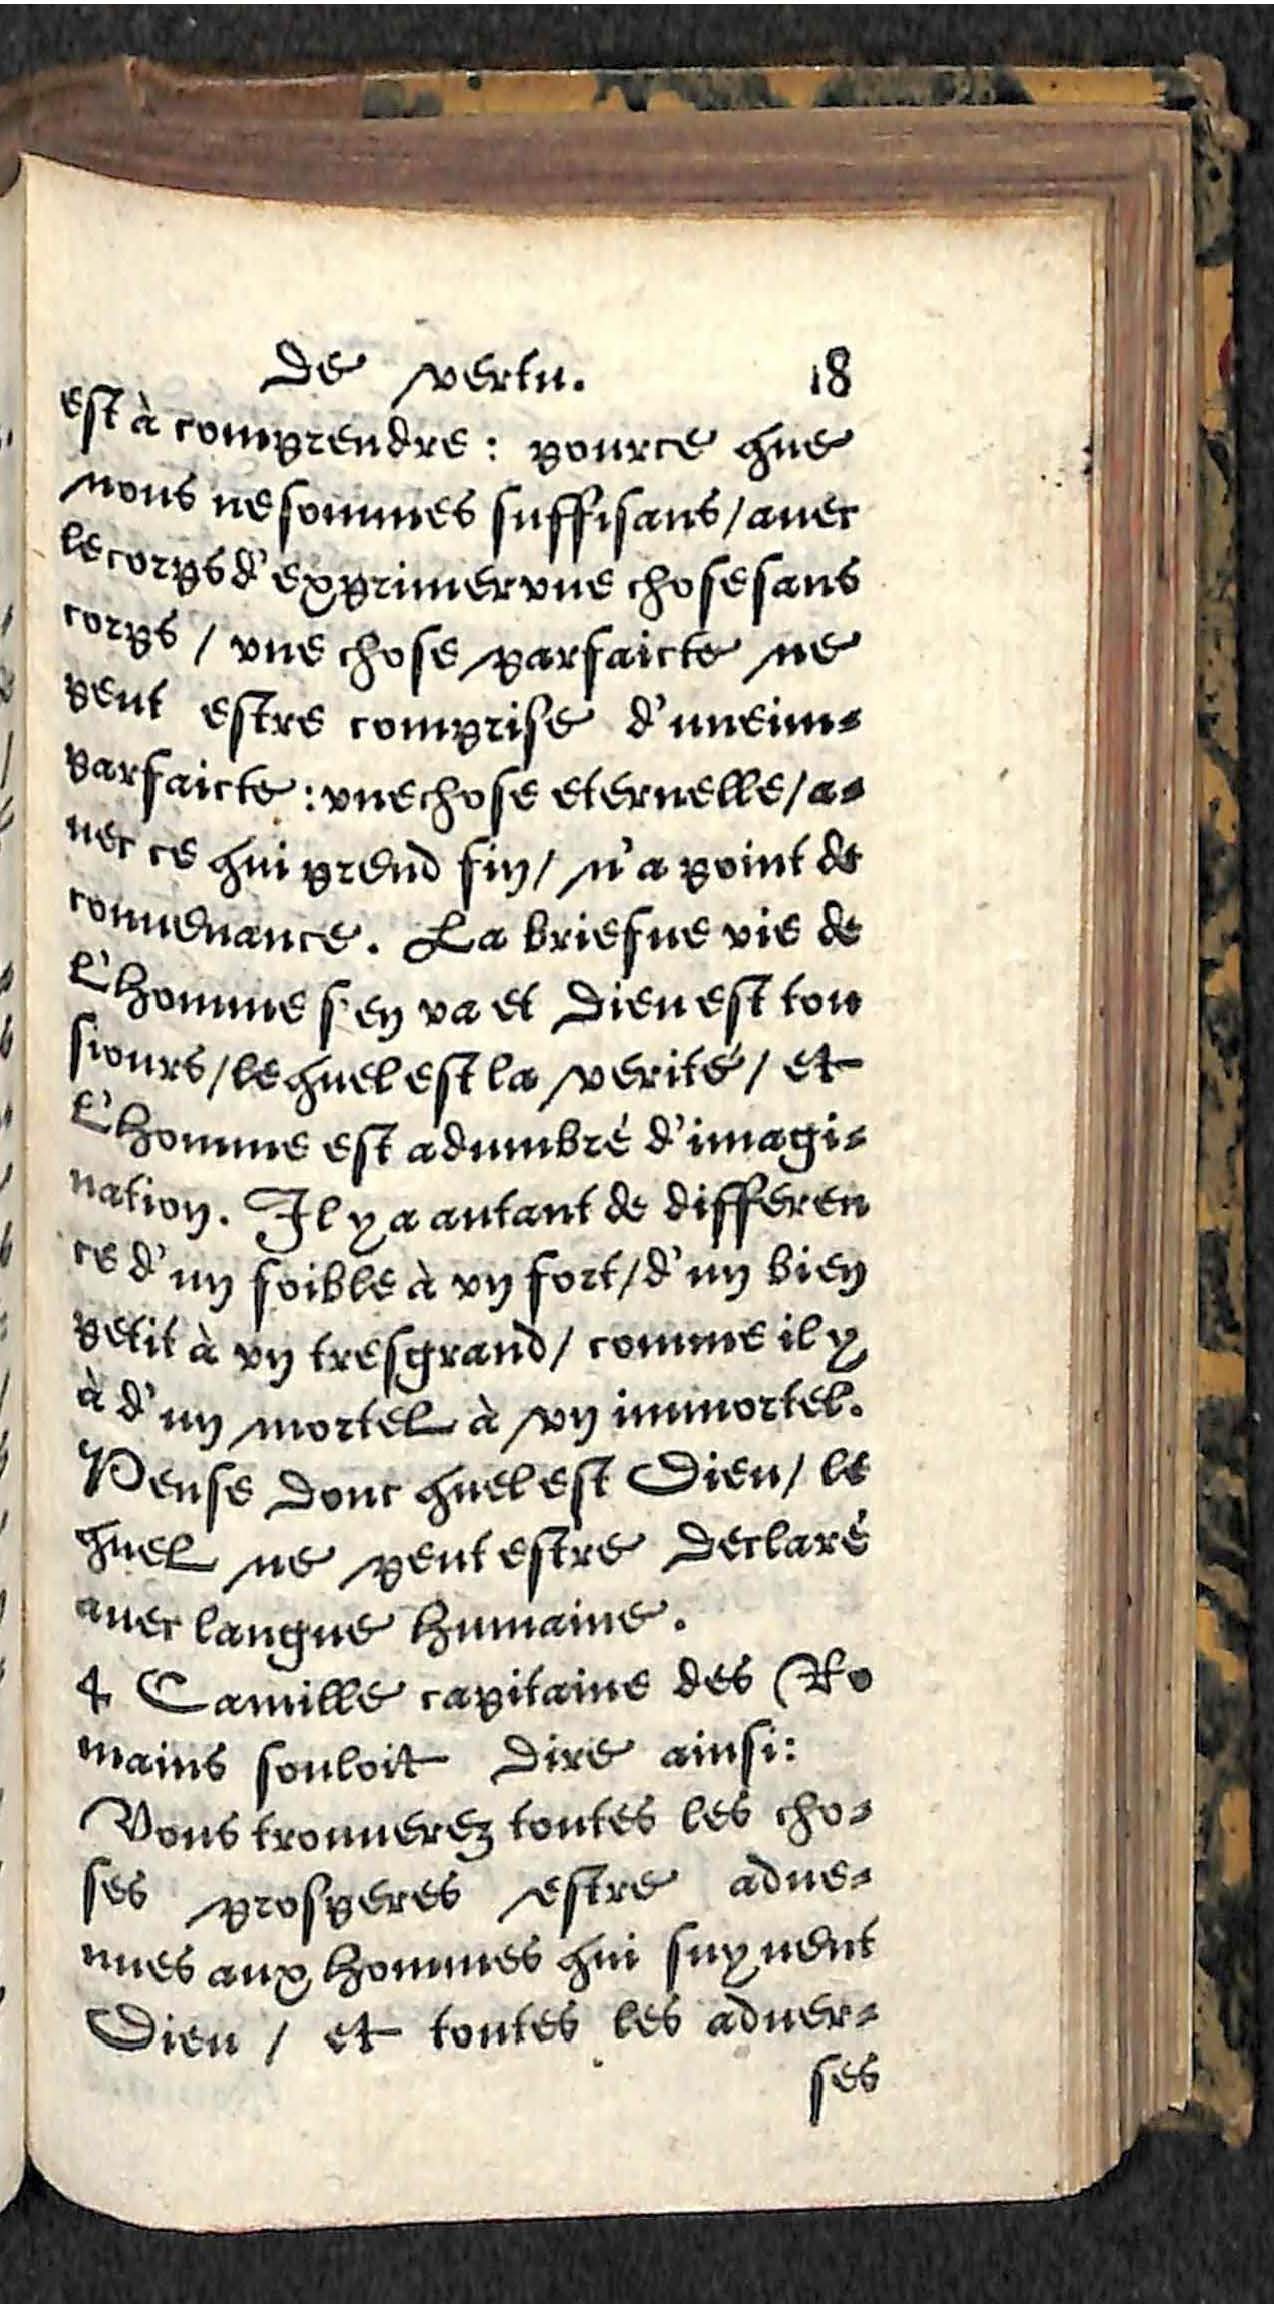 De vertu. 18
est à comprendre : pource que
nous ne sommes suffisans / auec
le corps d'exprimer vne chose sans
corps / vne chose parfaicte ne
peut estre comprise d'vne im-
parfaicte : vne chose eternelle / a-
uec ce qui prend fin / n'a point de
conuenance. La briefue vie de
l'homme s'en va et Dieu est tou
siours / lequel est la verité / et
l'homme est adumbré d'imagi-
nation. Il y a autant de differen
ce d'un foible à vn fort / d'un bien
petit à vn tresgrand / comme il y
à d'un mortel à vn immortel.
Pense donc quel est Dieu / le
quel ne peut estre declaré
auec langue humaine.
4 Camille capitaine des Ro
mains souloit dire ainsi :
Vous trouuerez toutes les cho-
ses prosperes estre adue-
nues aux hommes qui suyuent
Dieu / et toutes les aduer-
ses